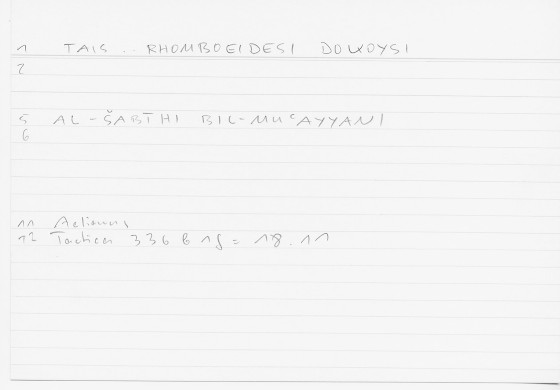 1 TAIS .. RHOMBOEIDESI DOKOYSI
2
5 AL-ŠABĪHI BIL-MUʿAYYANI
6
11 Aelianus
12 Tactica 336 B 15 = 18.11